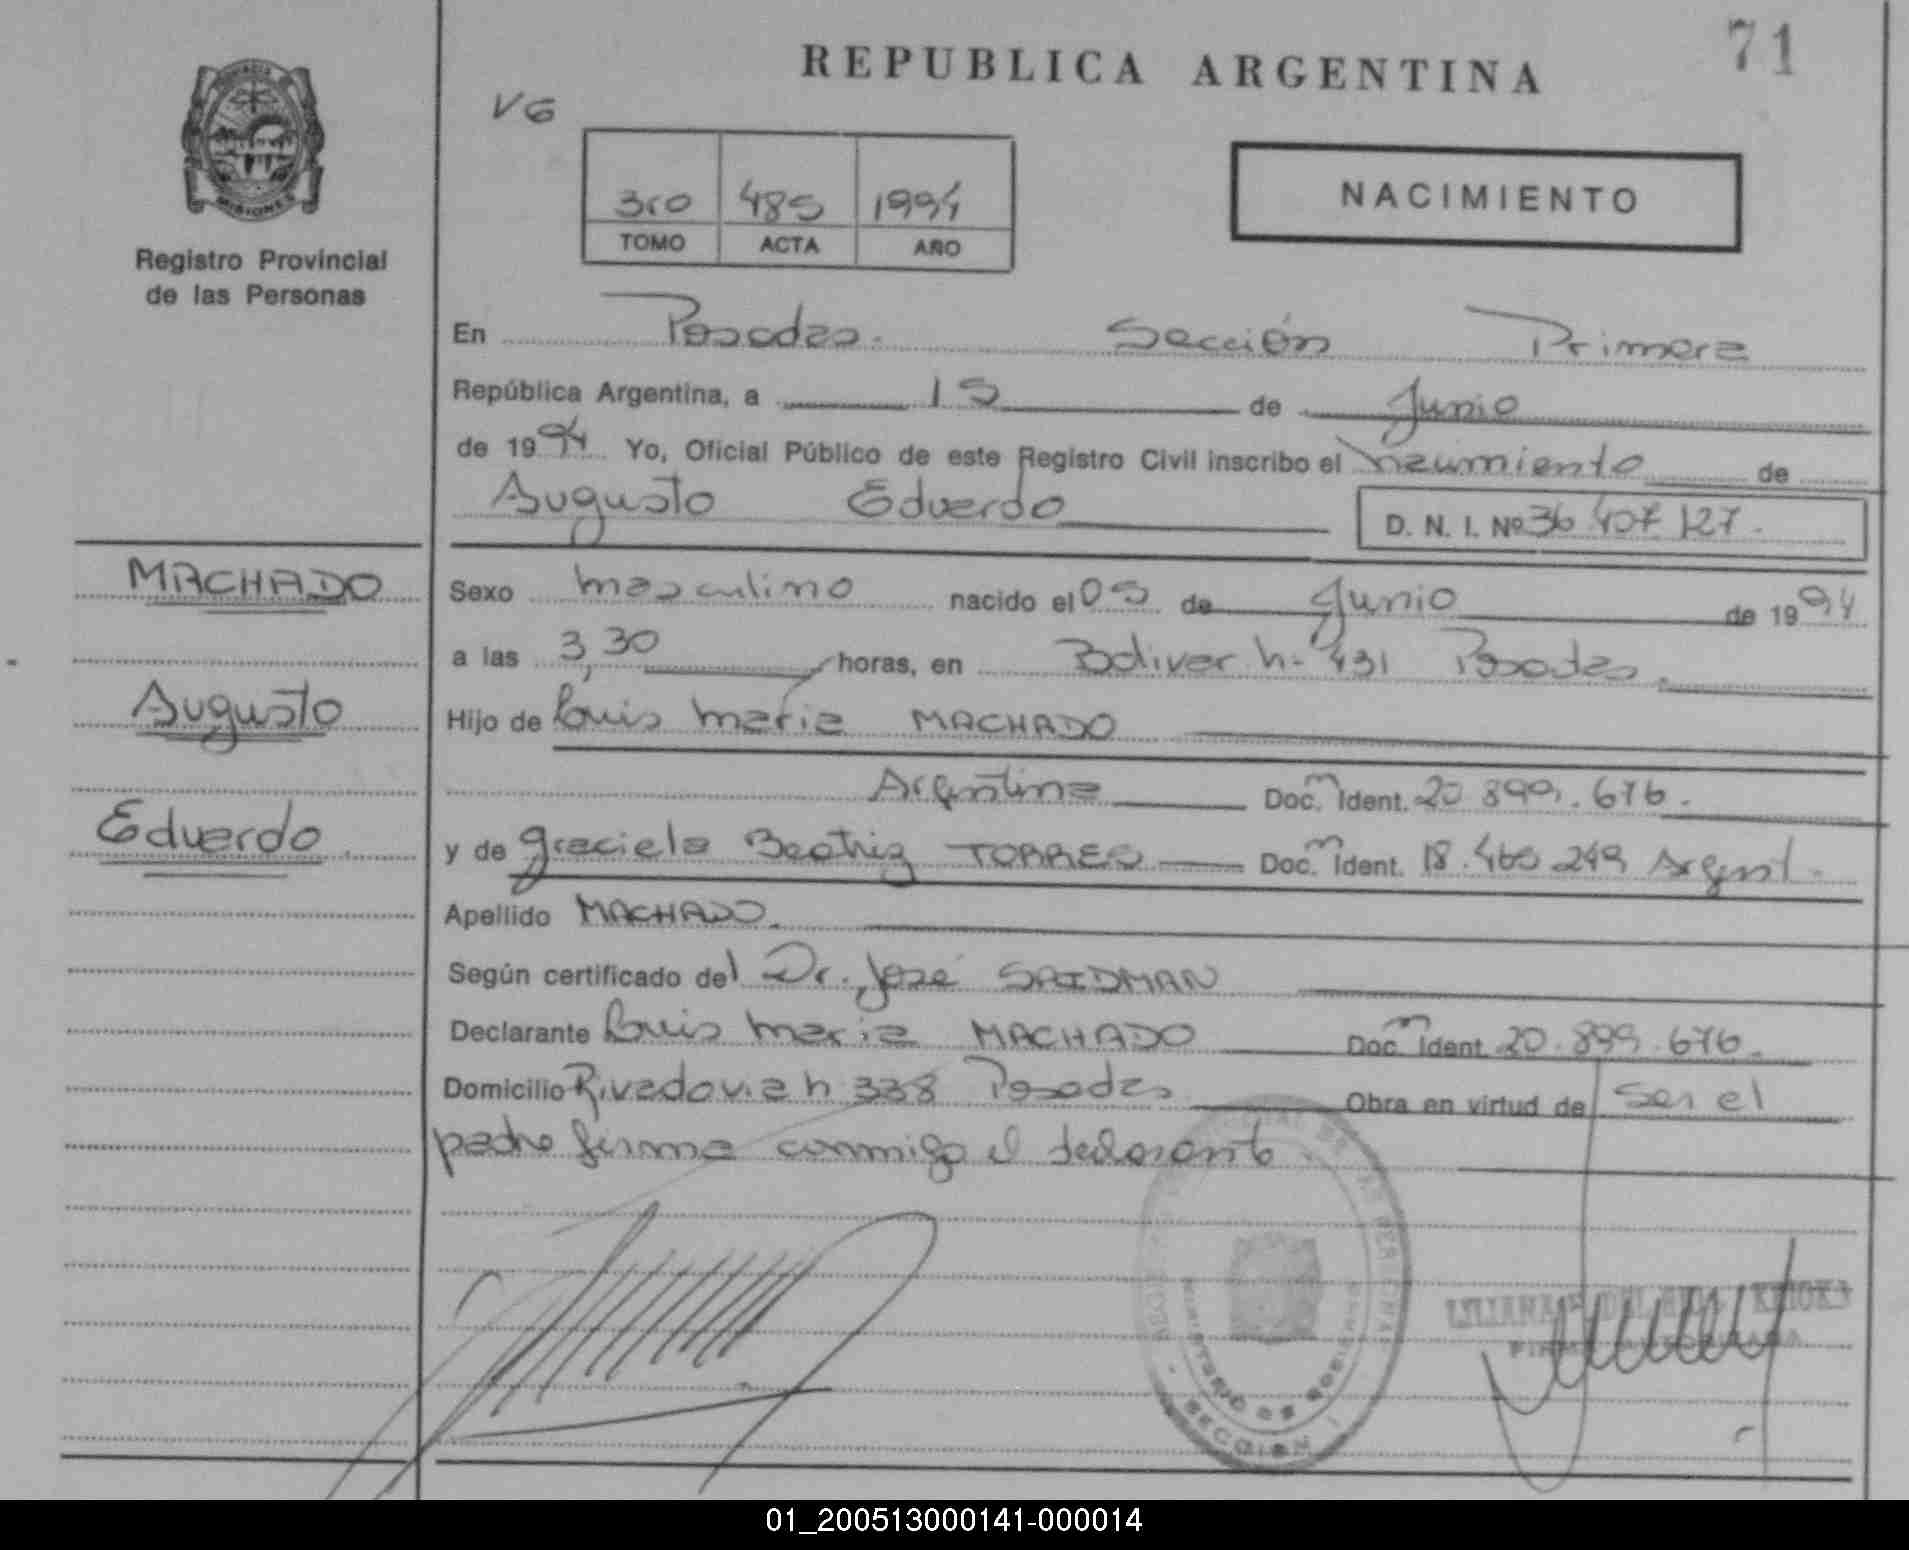 71
REPUBLICA ARGENTINA
VG
MISIONES
Registro Provincial
de las Personas
3ro 485 1994
TOMO ACTA AÑO
NACIMIENTO
En Posadas. Sección Primera
República Argentina, a 15 de Junio
de 1994 Yo, Oficial Público de este Registro Civil inscribo el nacimiento de
Augusto Eduardo D. N. I. Nº 36 407 127.
MACHADO
Augusto
Eduardo.
Sexo masculino nacido el 05 de Junio de 1994
a las 3,30 horas, en Bolivar n- 431 Posadas.
Hijo de Luis Maria MACHADO
Argentina Doc. Ident. 20 899.676.
y de Graciela Beatriz TORRES Doc. Ident. 18.460 249 Argent.
Apellido MACHADO.
Según certificado del Dr. José SAIDMAN
Declarante Luis Maria MACHADO Doc. Ident. 20.899.676.
Domicilio Rivadavia n 338 Posadas Obra en virtud de ser el
padre firma conmigo el declarante
SECCION
FIRMA AUTORIZADA
01_200513000141-000014